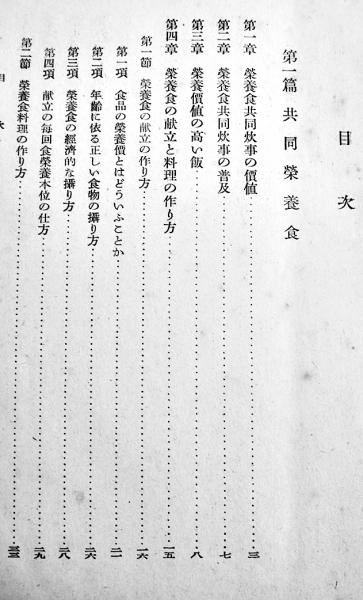 目次
第一篇 共同榮養食
第一章 榮養食共同炊事の價値……三
第二章 榮養食共同炊事の普及……七
第三章 榮養價値の高い飯……八
第四章 榮養食の献立と料理の作り方……一五
第一節 榮養食の献立の作り方……一六
第一項 食品の榮養價とはどういふことか……二一
第二項 年齡に依る正しい食物の攝り方……二六
第三項 榮養食の經濟的な攝り方……二八
第四項 献立の每回食榮養本位の仕方……二九
第二節 榮養食料理の作り方……三三
目次